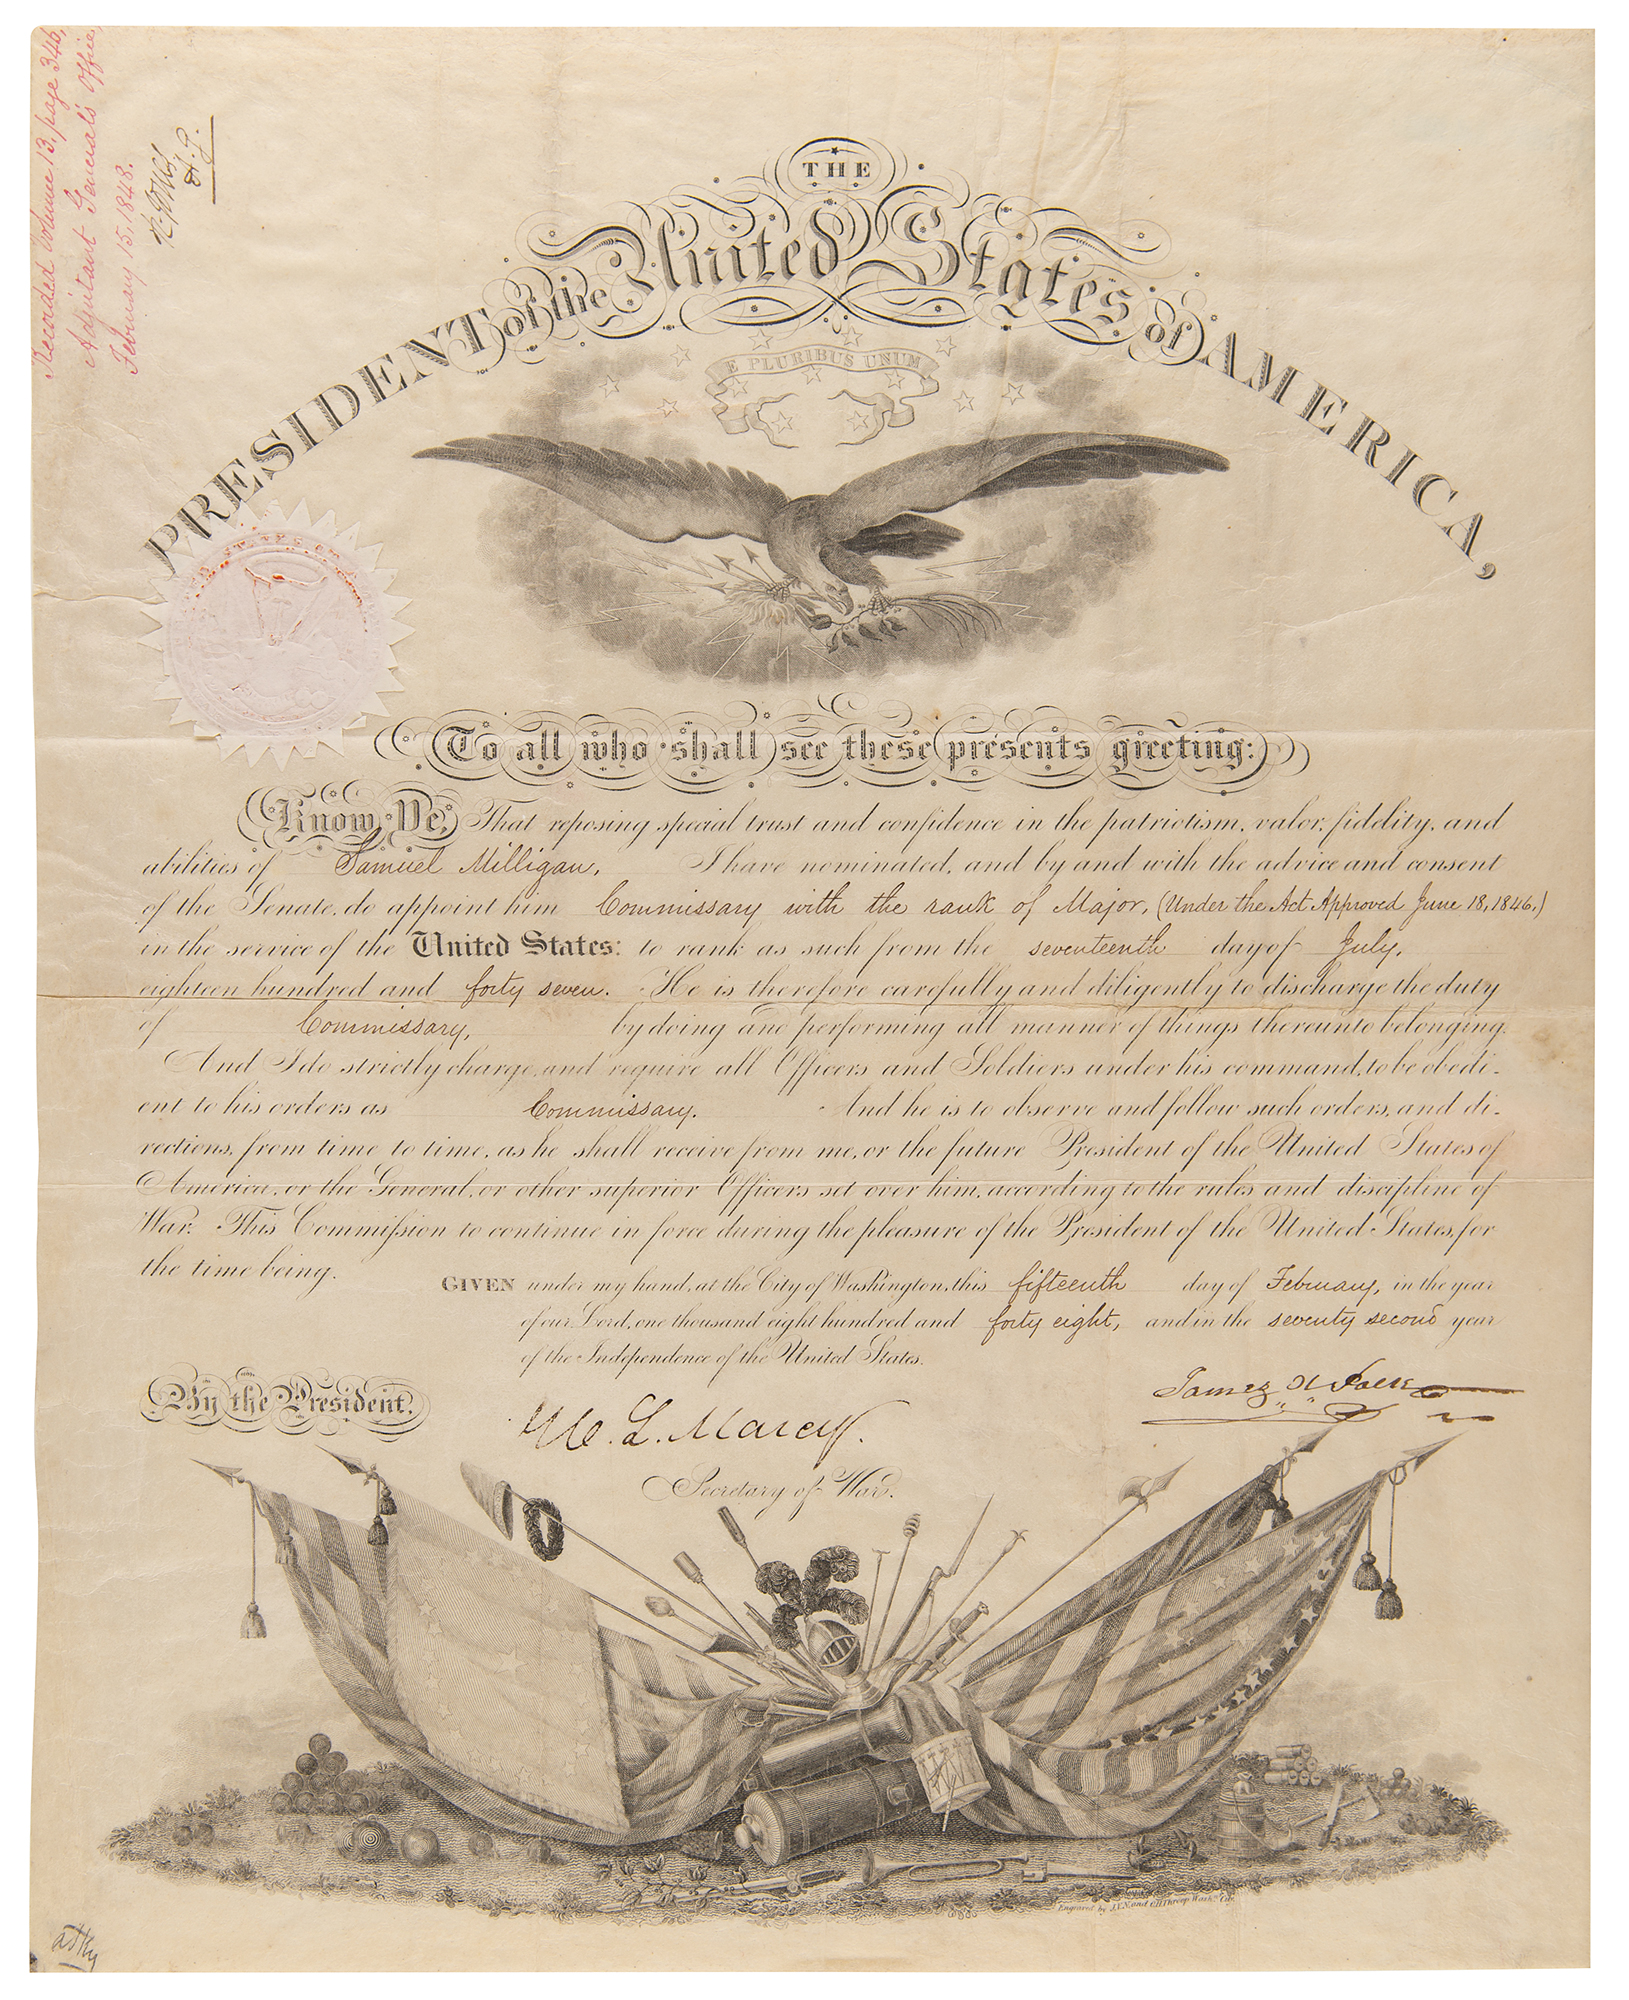 Recorded Volume 13, page 346,
Adjutant General's Office,
February 15, 1848.
R. Jones
A.G.
THE
PRESIDENT of the United States of AMERICA,
E PLURIBUS UNUM
To all who shall see these presents greeting:
Know Ye, That reposing special trust and confidence in the patriotism, valor, fidelity, and
abilities of Samuel Milligan, I have nominated, and by and with the advice and consent
of the Senate, do appoint him Commissary with the rank of Major, (Under the Act Approved June 18, 1846.)
in the service of the United States: to rank as such from the seventeenth day of July,
eighteen hundred and forty seven. He is therefore carefully and diligently to discharge the duty
of Commissary, by doing and performing all manner of things thereunto belonging.
And I do strictly charge, and require all Officers and Soldiers under his command, to be obedi-
ent to his orders as Commissary. And he is to observe and follow such orders, and di-
rections, from time to time, as he shall receive from me, or the future President of the United States of
America, or the General, or other superior Officers set over him, according to the rules and discipline of
War. This Commission to continue in force during the pleasure of the President of the United States, for
the time being.
GIVEN under my hand, at the City of Washington, this fifteenth day of February, in the year
of our Lord, one thousand eight hundred and forty eight, and in the seventy second year
of the Independence of the United States.
James K Polk
By the President.
W. L. Marcy.
Secretary of War.
Engraved by J.V.N. and O.H. Throop Wash.n City